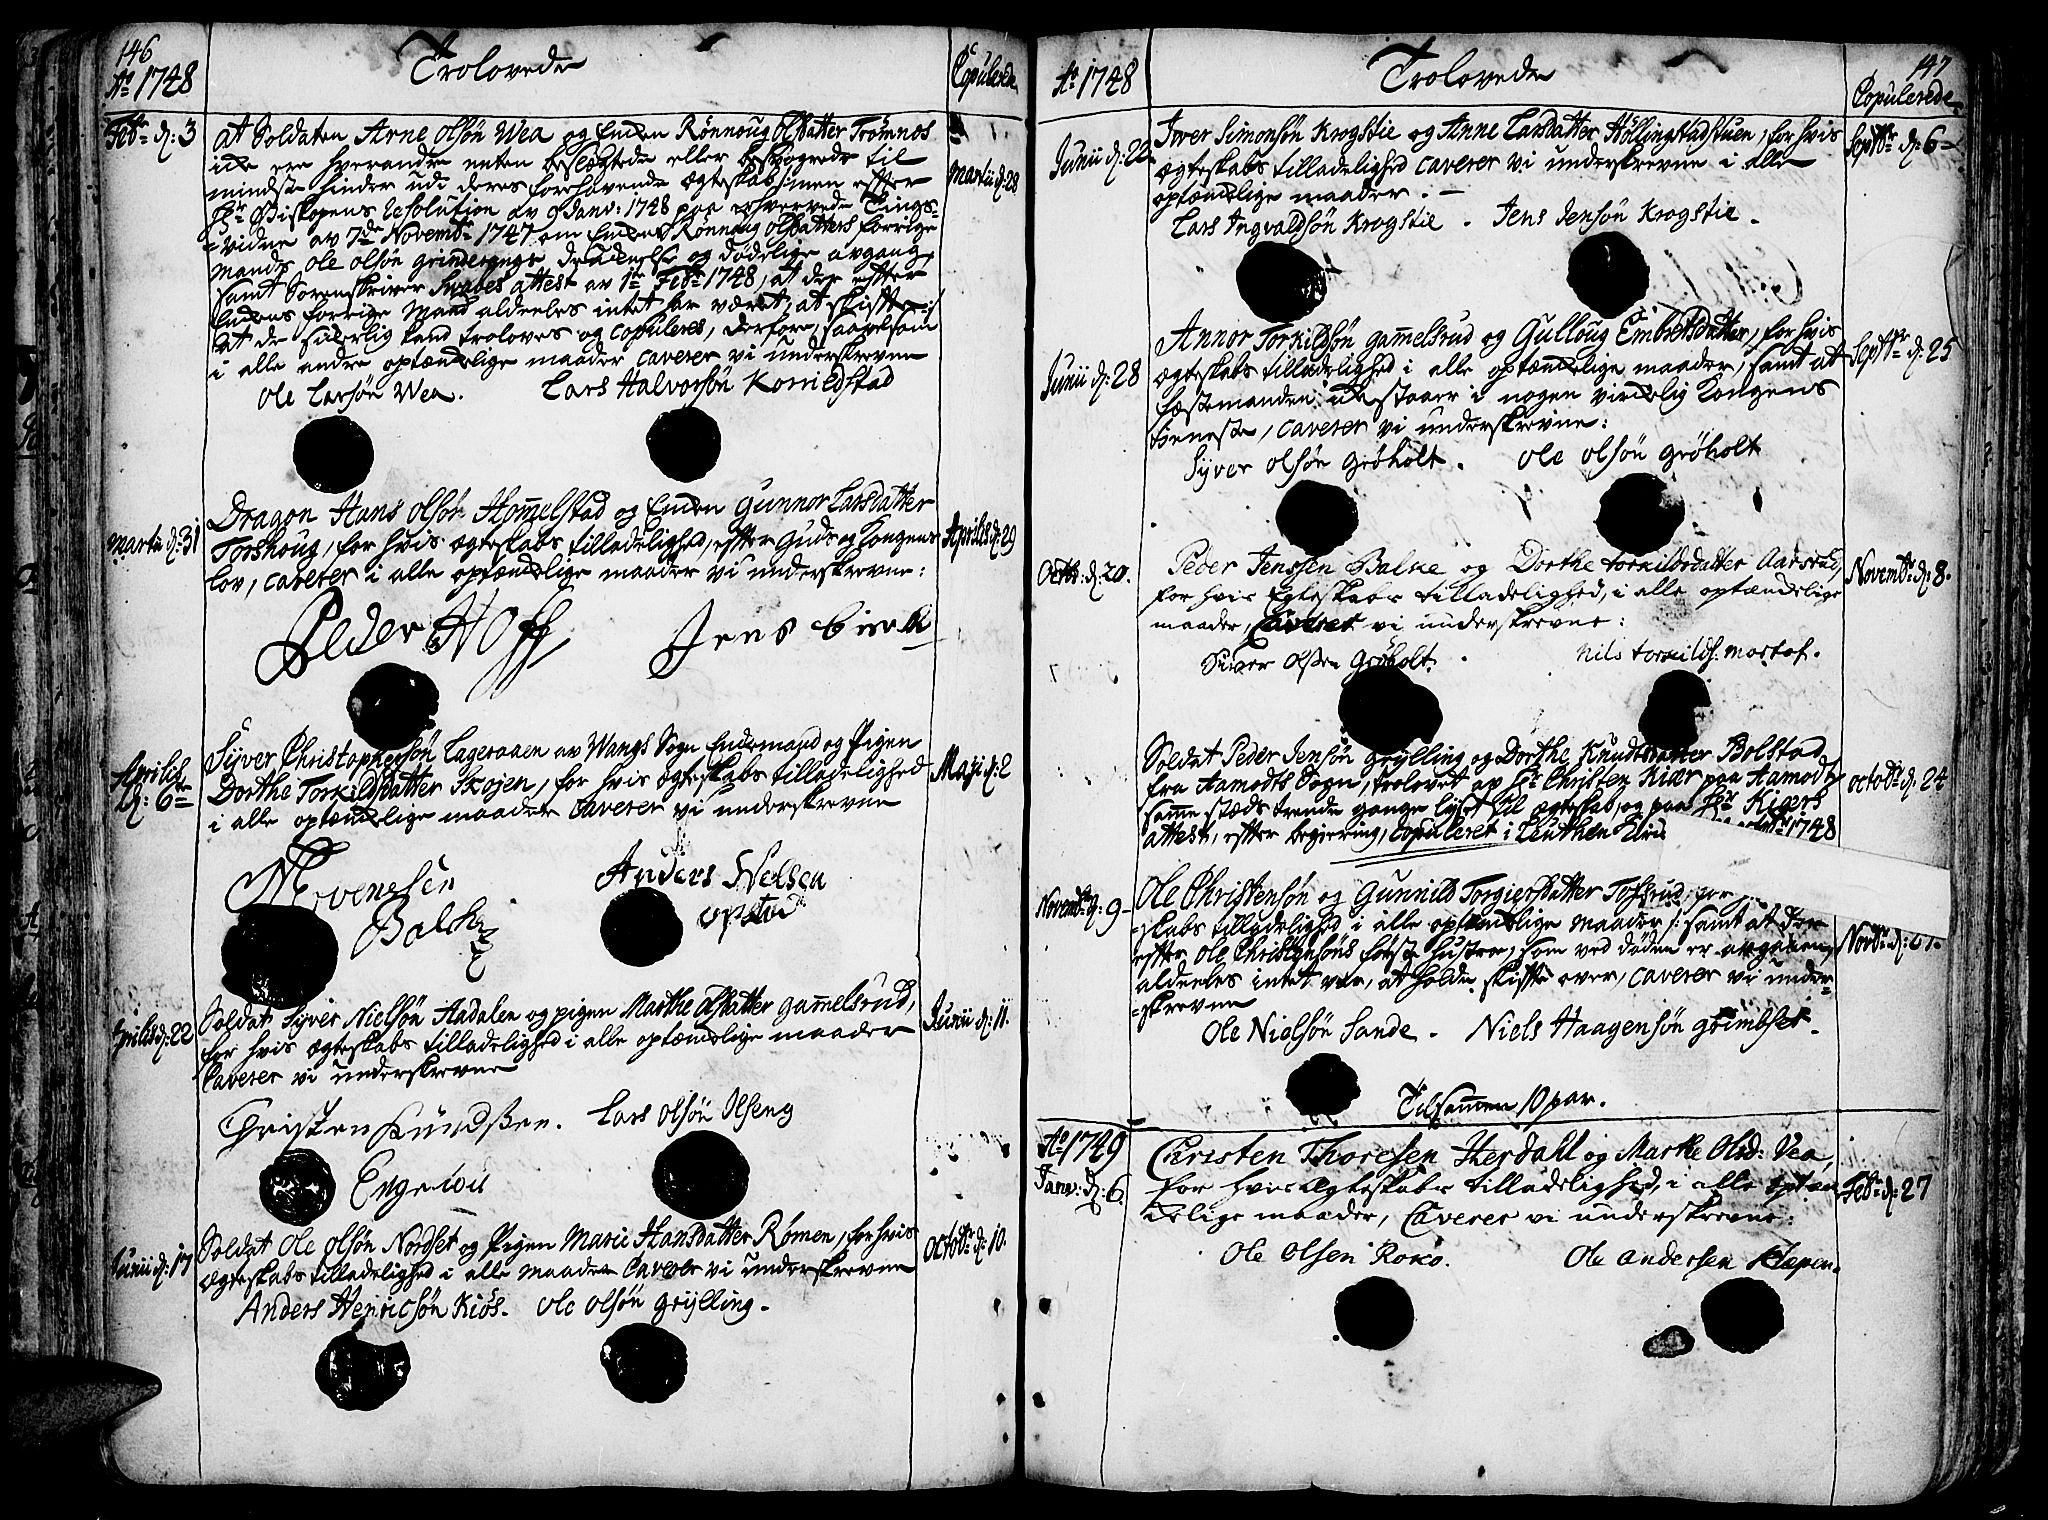 146
Ao 1748
Trolovede
Copulerede
Febr: d: 3
At Soldaten Arne Olsön Wea og Enken Rönnoug Olsdatter Trömnes
icke ere hverandre enten beslegtede eller besvogrede til
mindste hinder udi deres forehavende ægteskab; men effter
Hr Biskopens Resolution av 9 Janv: 1748 paa erhvervede Tings-
=vidne av 7de Novembr 1747 om Enkens Rönnoug Olsdatters forrige
Mands Ole Olsön
og dödelige avgang,
samt Sorenskriver Svabes attest av 1te Febr 1748, at der effter
Enkens forrige Mand aldeeles intet har været at skiffte:/
at de sikerlig kand troloves og copuleres, derfore, saavelsom
i alle andre optænckelige maader caverer vi underskrevne
Martii d: 28
Ole Larsön Wea.
Lars Halvorsön Korrildstad
Martii d: 31
Dragon Hans Olsön Hommelstad og Enken Gunnor Larsdatter
Torshoug, for hvis ægteskabs tilladelighed, effter Guds og Kongens
lov, caverer i alle optænckelige maader vi underskrevne:
Aprilis d: 29
Peder Hoff
Jens
Aprilis d: 6te
Syver Christophersön Lageraaen av Wangs Sogn Enckemand og Pigen
Dorthe Torkildsdatter Skojen, for hvis ægteskabs tilladelighed
i alle optænckelige maader caverer vi underskrevne
Maji d: 2
Balch
Anders Nelsen
opstad
Aprilis d: 22
Soldat Syver Nielsön Aadalen og pigen Marthe Olsdatter Gammelsrud,
for hvis ægteskabs tilladelighed i alle optænckelige maader
Caverer vi underskrevne
Junii d: 11.
Christen Knudßen.
Lars Olsön Olseng
Junii d: 17
Soldat Ole Olsön Nordset og Pigen Marie Hansdatter Römen, for hvis
ægteskabs tilladelighed i alle maader Caverer vi underskrevne
Octobr d: 10.
Anders Henricsön Kiös.
Ole Olsön Grylling.
147
Ao 1748
Trolovede
Copulerede
Junii d: 22
Iver Simonsön Krogstie og Anne Larsdatter Höllingstadstuen, for hvis
ægteskabs tilladelighed caverer vi underskrevne i alle
optænckelige maader.
Septbr d: 6
Lars Ingvaldsön Krogstie.
Jens Jensön Krogstie.
Junii d: 28
Annor Torkildsön Gammelsrud og Gulloug Embretsdatter, for hvis
ægteskabs tilladelighed i alle optænckelige maader, samt at
fæstemanden icke staaer i nogen virckelig Kongens
tieneste, caverer vi underskrevne:
Septbr d: 25
Syver Olsön Gröholt.
Ole Olsön Gröholt
Octbr: d: 20.
Peder Jenssen Balke og Dorthe Torkildsdatter Aarsrud,
for hvis Egteskabs tilladelighed, i alle optænckelige
maader, Caverer vi underskrevne:
Novembr d: 8.
Siver Olßen Gröholt.
Nils torkilds: mortof.
Soldat Peder Jensön Grylling og Dorthe Knudtsdatter Bolstad
fra Aamodts Sogn, trolovet af Hr Christen Kiær paa Aamodt,
samme stæds trende gange lyst til ægteskab, og paa Hr Kiærs
attest, effter begiering, copuleret i Leuthen Kirke
1748
octobr d: 24
Novembr d: 9
Ole Christensön og Gunnild Torgiersdatter Tofsrud, for
=skabs tilladelighed i alle optænckelige maader /: samt at der
effter Ole Christensöns förste hustroe, som ved döden er avgaaen,
aldeeles intet var, at holde skiffte over, caverer vi under-
=skrevne
Novbr d:
Ole Nielsön Sande.
Niels Haagensön Grimbset.
Tilsammen 10 par.
Ao 1749
Janv: d: 6
Christen Thoresen Herdahl og Marthe Olsd: Vea,
for hvis Egteskabs tilladelighed, i alle optæn
ckelige maader, Caverer vi underskrevne:
Febr d: 27
Ole Olsen Rokö.
Ole Andersen Klæpen.